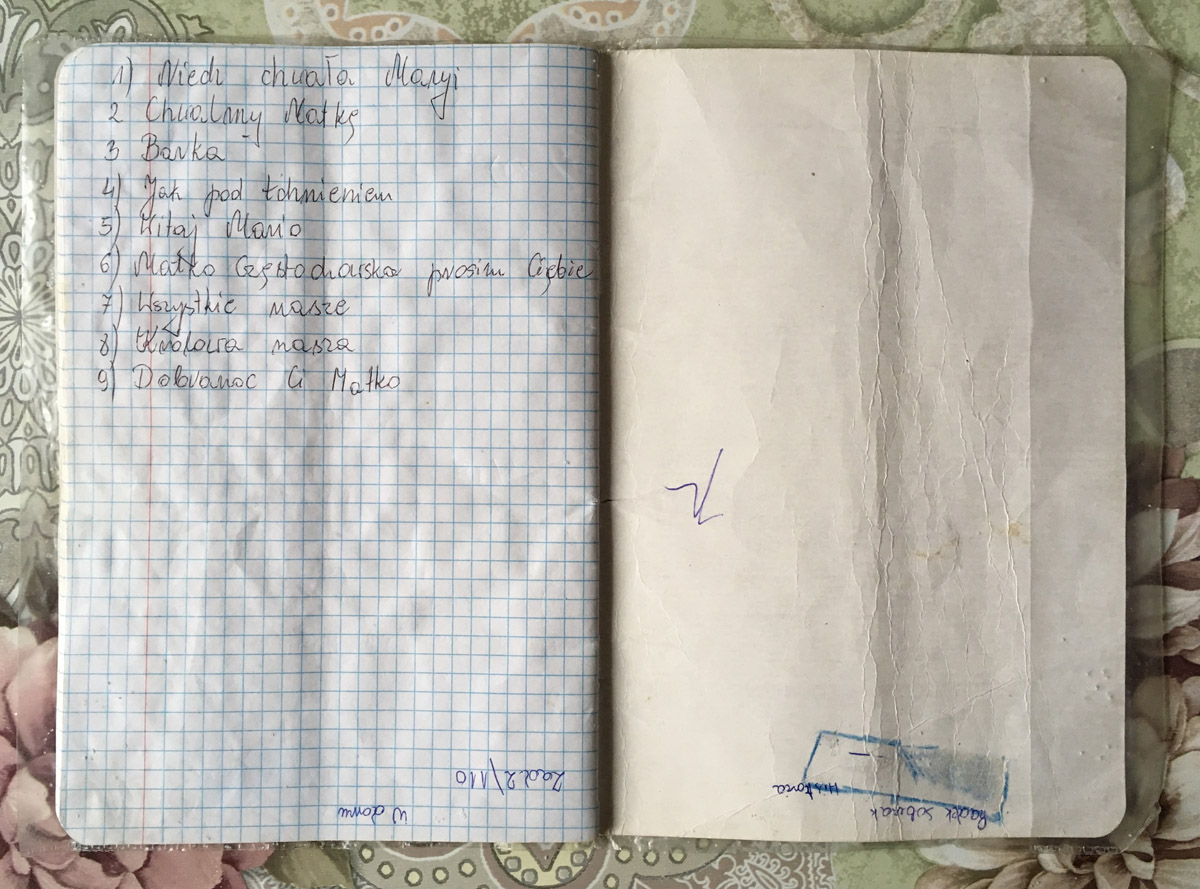 1) Niech chwała Maryi
2 Chwalmy Matkę
3 Barka
4) Jak pod tchnieniem
5) Witaj Mario
6) Matko Częstochowska prosim Ciębie
7) Wszystkie nasze
8) Królowa nasza
9) Dobranoc Ci Matko
Zad 2/110
W domu
Historia
Radek Sobczak